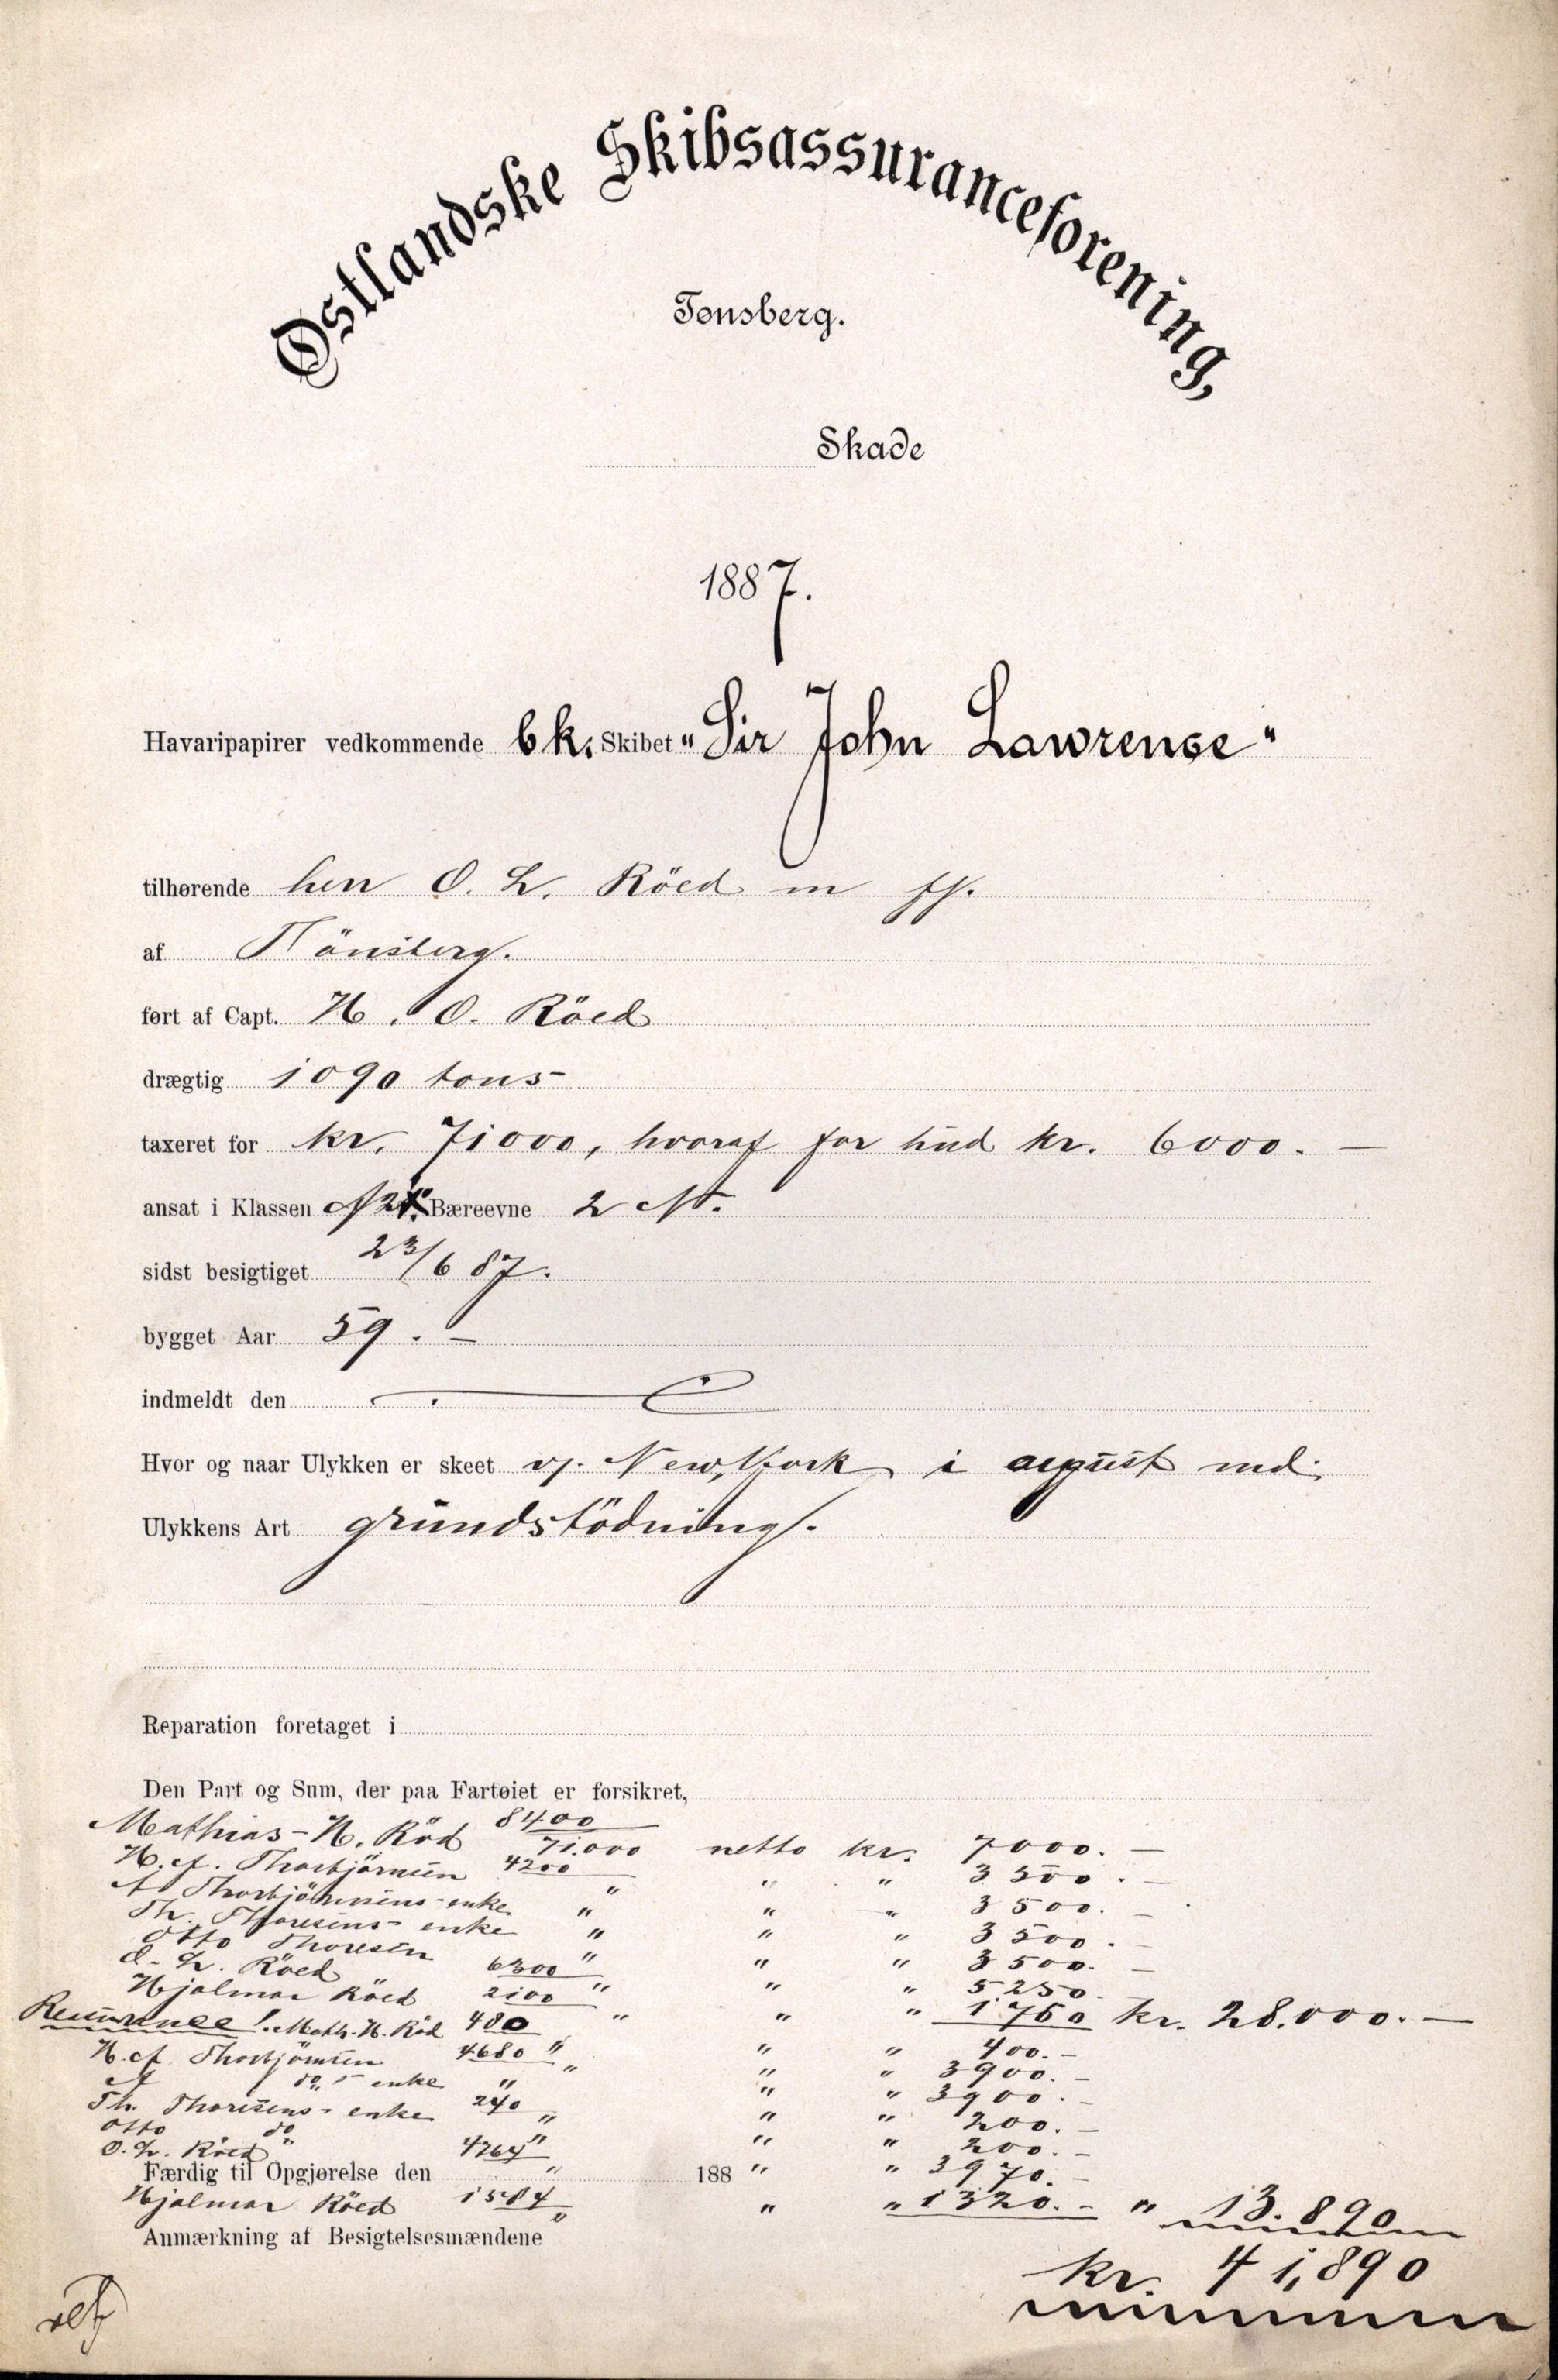 Østlandske Skibsassuranceforening,
Tønsberg.
Skade
1887.
Havaripapirer vedkommende bk. Skibet "Sir John Lawrence"
tilhørende herr O. L. Röed m fl.
af Tönsberg.
ført af Capt. H. O. Röed
drægtig 1090 tons
taxeret for kr. 71000, hvoraf for hud kr. 6000. —
ansat i Klassen A 2 Bæreevne 2 A.
sidst besigtiget 23/6 87.
bygget Aar 59. —
indmeldt den
Hvor og naar Ulykken er skeet v/. New York i august md.
Ulykkens Art grundstödning.
Reparation foretaget i
Den Part og Sum, der paa Fartøiet er forsikret,
Mathias H. Röd 8400/71.000 netto kr. 7000. —
H. A. Thorbjörnsen 4200 " " " 3500. —
A Thorbjörnsens enke " " " 3500. —
Th. Thoresens enke " " " 3500. —
Otto Thoresen " " " 3500. —
O. L. Röed 6300 " " " 5250.
Hjalmar Röed 2100 " " " 1750 kr. 28.000. —
Reassurance! Math. H. Röd 480 " " " 400. —
H. A. Thorbjörnsen 4680 " " " 3900. —
A do enke " " " 3900. —
Th. Thoresens enke 240 " " " 200. —
Otto do " " " 200. —
O. L. Röed 4764 " " " 3970. —
Færdig til Opgjørelse den 188
Hjalmar Röed 1584 " " " 1320. — " 13.890
Anmærkning af Besigtelsesmændene
kr. 41,890